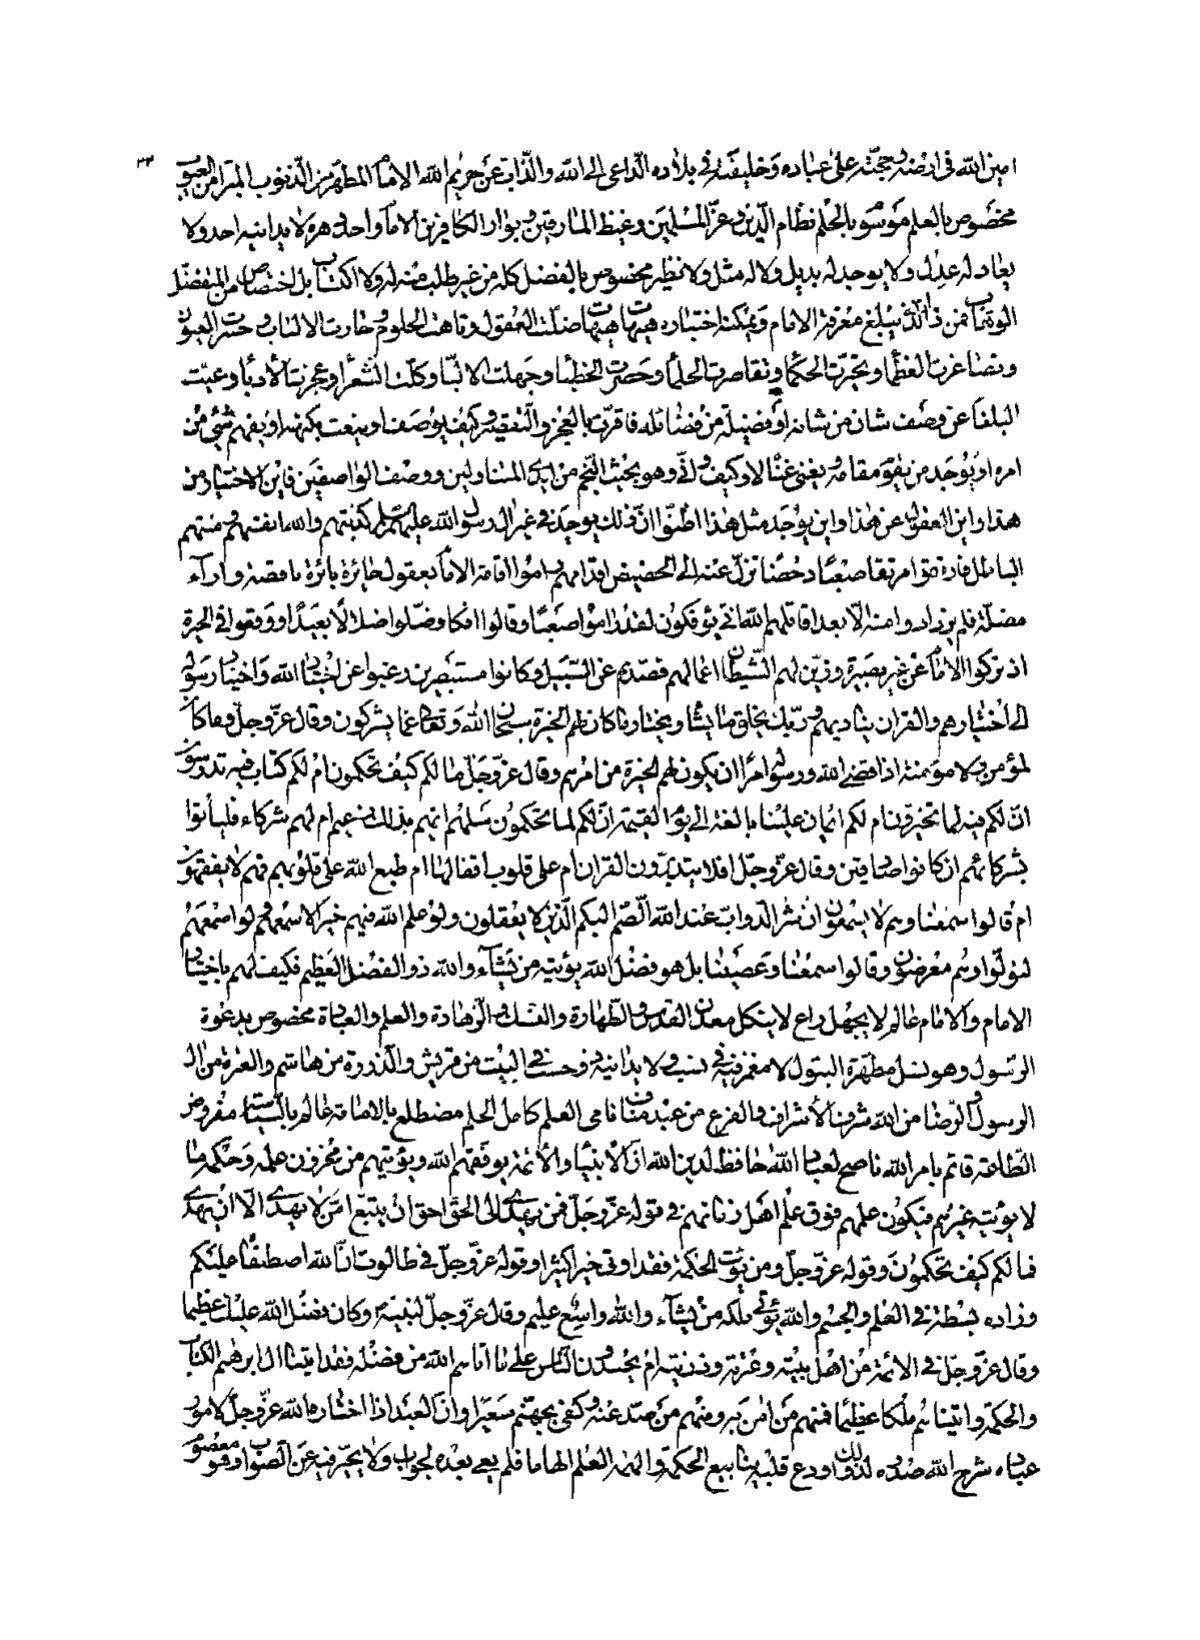 ٣٣
امين الله فى ارضه و حجته على عباده و خليفته فى بلاده الداعى الى الله و الذاب عن حريم الله الامام المطهر من الذنوب المبرا من العيوب
مخصوص بالعلم موسوم بالحلم نظام الدين و عز المسلمين و غيظ المنافقين و بوار الكافرين الامام واحد دهره لا يدانيه احد و لا
يعادله عدل و لا يوجد له بديل و لا له مثل و لا نظير مخصوص بالفضل كله من غير طلب منه له و لا اكتساب بل اختصاص من المتفضل
الوهاب فمن ذا الذى يبلغ معرفة الامام و يمكنه اختياره هيهات هيهات ضلت العقول و تاهت الحلوم و حارت الالباب و حسرت العيون
و تصاغرت العظما و تحيرت الحكما و تقاصرت الحلما و حصرت الخطبا و جهلت الالبا و كلت الشعرا و عجزت الادبا و عييت
البلغا عن وصف شان من شانه او فضيلة من فضائله فاقرت بالعجز و التقصير و كيف يوصف او ينعت بكنهه او يفهم شئ من
امره او يوجد من يقوم مقامه و يغنى غناه لا و كيف و انى و هو بحيث النجم من ايدى المتناولين و وصف الواصفين فاين الاختيار من
هذا و اين العقول عن هذا و اين يوجد مثل هذا اظنوا ان ذلك يوجد فى غير ال رسول الله عليهم السلم كذبتهم و الله انفسهم و منتهم
الباطل فارتقوا مرتقا صعبا دحضا تزل عنه الى الحضيض اقدامهم راموا اقامة الامام بعقول حائرة بائرة ناقصة و آراء
مضلة فلم يزدادوا منه الا بعدا قاتلهم الله انى يؤفكون لقد راموا صعبا و قالوا افكا و ضلوا ضلالا بعيدا و وقعوا فى الحيرة
اذ تركوا الامام عن غير بصيرة و زين لهم الشيطان اعمالهم فصدهم عن السبيل و كانوا مستبصرين رغبوا عن اختيار الله و اختيار رسوله
الى اختيارهم و القران يناديهم و ربك يخلق ما يشاء و يختار ما كان لهم الخيرة سبحان الله و تعالى عما يشركون و قال عز و جل و ما كان
لمؤمن و لا مؤمنة اذا قضى الله و رسوله امرا ان يكون لهم الخيرة من امرهم و قال عز و جل ما لكم كيف تحكمون ام لكم كتاب فيه تدرسون
ان لكم فيه لما تخيرون ام لكم ايمان علينا بالغة الى يوم القيمة ان لكم لما تحكمون سلهم ايهم بذلك زعيم ام لهم شركاء فلياتوا
بشركائهم ان كانوا صادقين و قال عز و جل افلا يتدبرون القران ام على قلوب اقفالها ام طبع الله على قلوبهم فهم لا يفقهون
ام قالوا سمعنا و هم لا يسمعون ان شر الدواب عند الله الصم البكم الذين لا يعقلون و لو علم الله فيهم خيرا لاسمعهم و لو اسمعهم
لتولوا و هم معرضون و قالوا سمعنا و عصينا بل هو فضل الله يؤتيه من يشآء و الله ذو الفضل العظيم فكيف لهم باختيار
الامام و الامام عالم لا يجهل راع لا ينكل معدن القدس و الطهارة و النسك و الزهادة و العلم و العبادة مخصوص بدعوة
الرسول و هو نسل مطهرة البتول لا مغمز فيه فى نسب و لا يدانيه ذو حسب فى البيت من قريش و الذروة من هاشم و العترة من ال
الرسول و الرضا من الله شرف الاشراف و الفرع من عبد مناف نامى العلم كامل الحلم مضطلع بالامامة عالم بالسياسة مفروض
الطاعة قائم بامر الله ناصح لعباد الله حافظ لدين الله ان الانبيا و الائمة يوفقهم الله و يؤتيهم من مخزون علمه و حكمه ما
لا يؤتيه غيرهم فيكون علمهم فوق علم اهل زمانهم فى قوله عز و جل افمن يهدى الى الحق احق ان يتبع امن لا يهدى الا ان يهدى
فما لكم كيف تحكمون و قوله عز و جل و من يؤت الحكمة فقد اوتى خيرا كثيرا و قوله عز و جل فى طالوت ان الله اصطفاه عليكم
و زاده بسطة فى العلم و الجسم و الله يؤتى ملكه من يشآء و الله واسع عليم و قال عز و جل لنبيه و كان فضل الله عليك عظيما
و قال عز و جل فى الائمة من اهل بيته و عترته و ذريته ام يحسدون الناس على ما اتاهم الله من فضله فقد اتينا ال ابرهيم الكتاب
و الحكمة و اتيناهم ملكا عظيما فمنهم من امن به و منهم من صد عنه و كفى بجهنم سعيرا و ان العبد اذا اختاره الله عز و جل لامور
عباده شرح الله صدره لذلك و اودع قلبه ينابيع الحكمة و الهمه العلم الهاما فلم يعى بعده بجواب و لا يحير فيه عن الصواب و هو معصوم